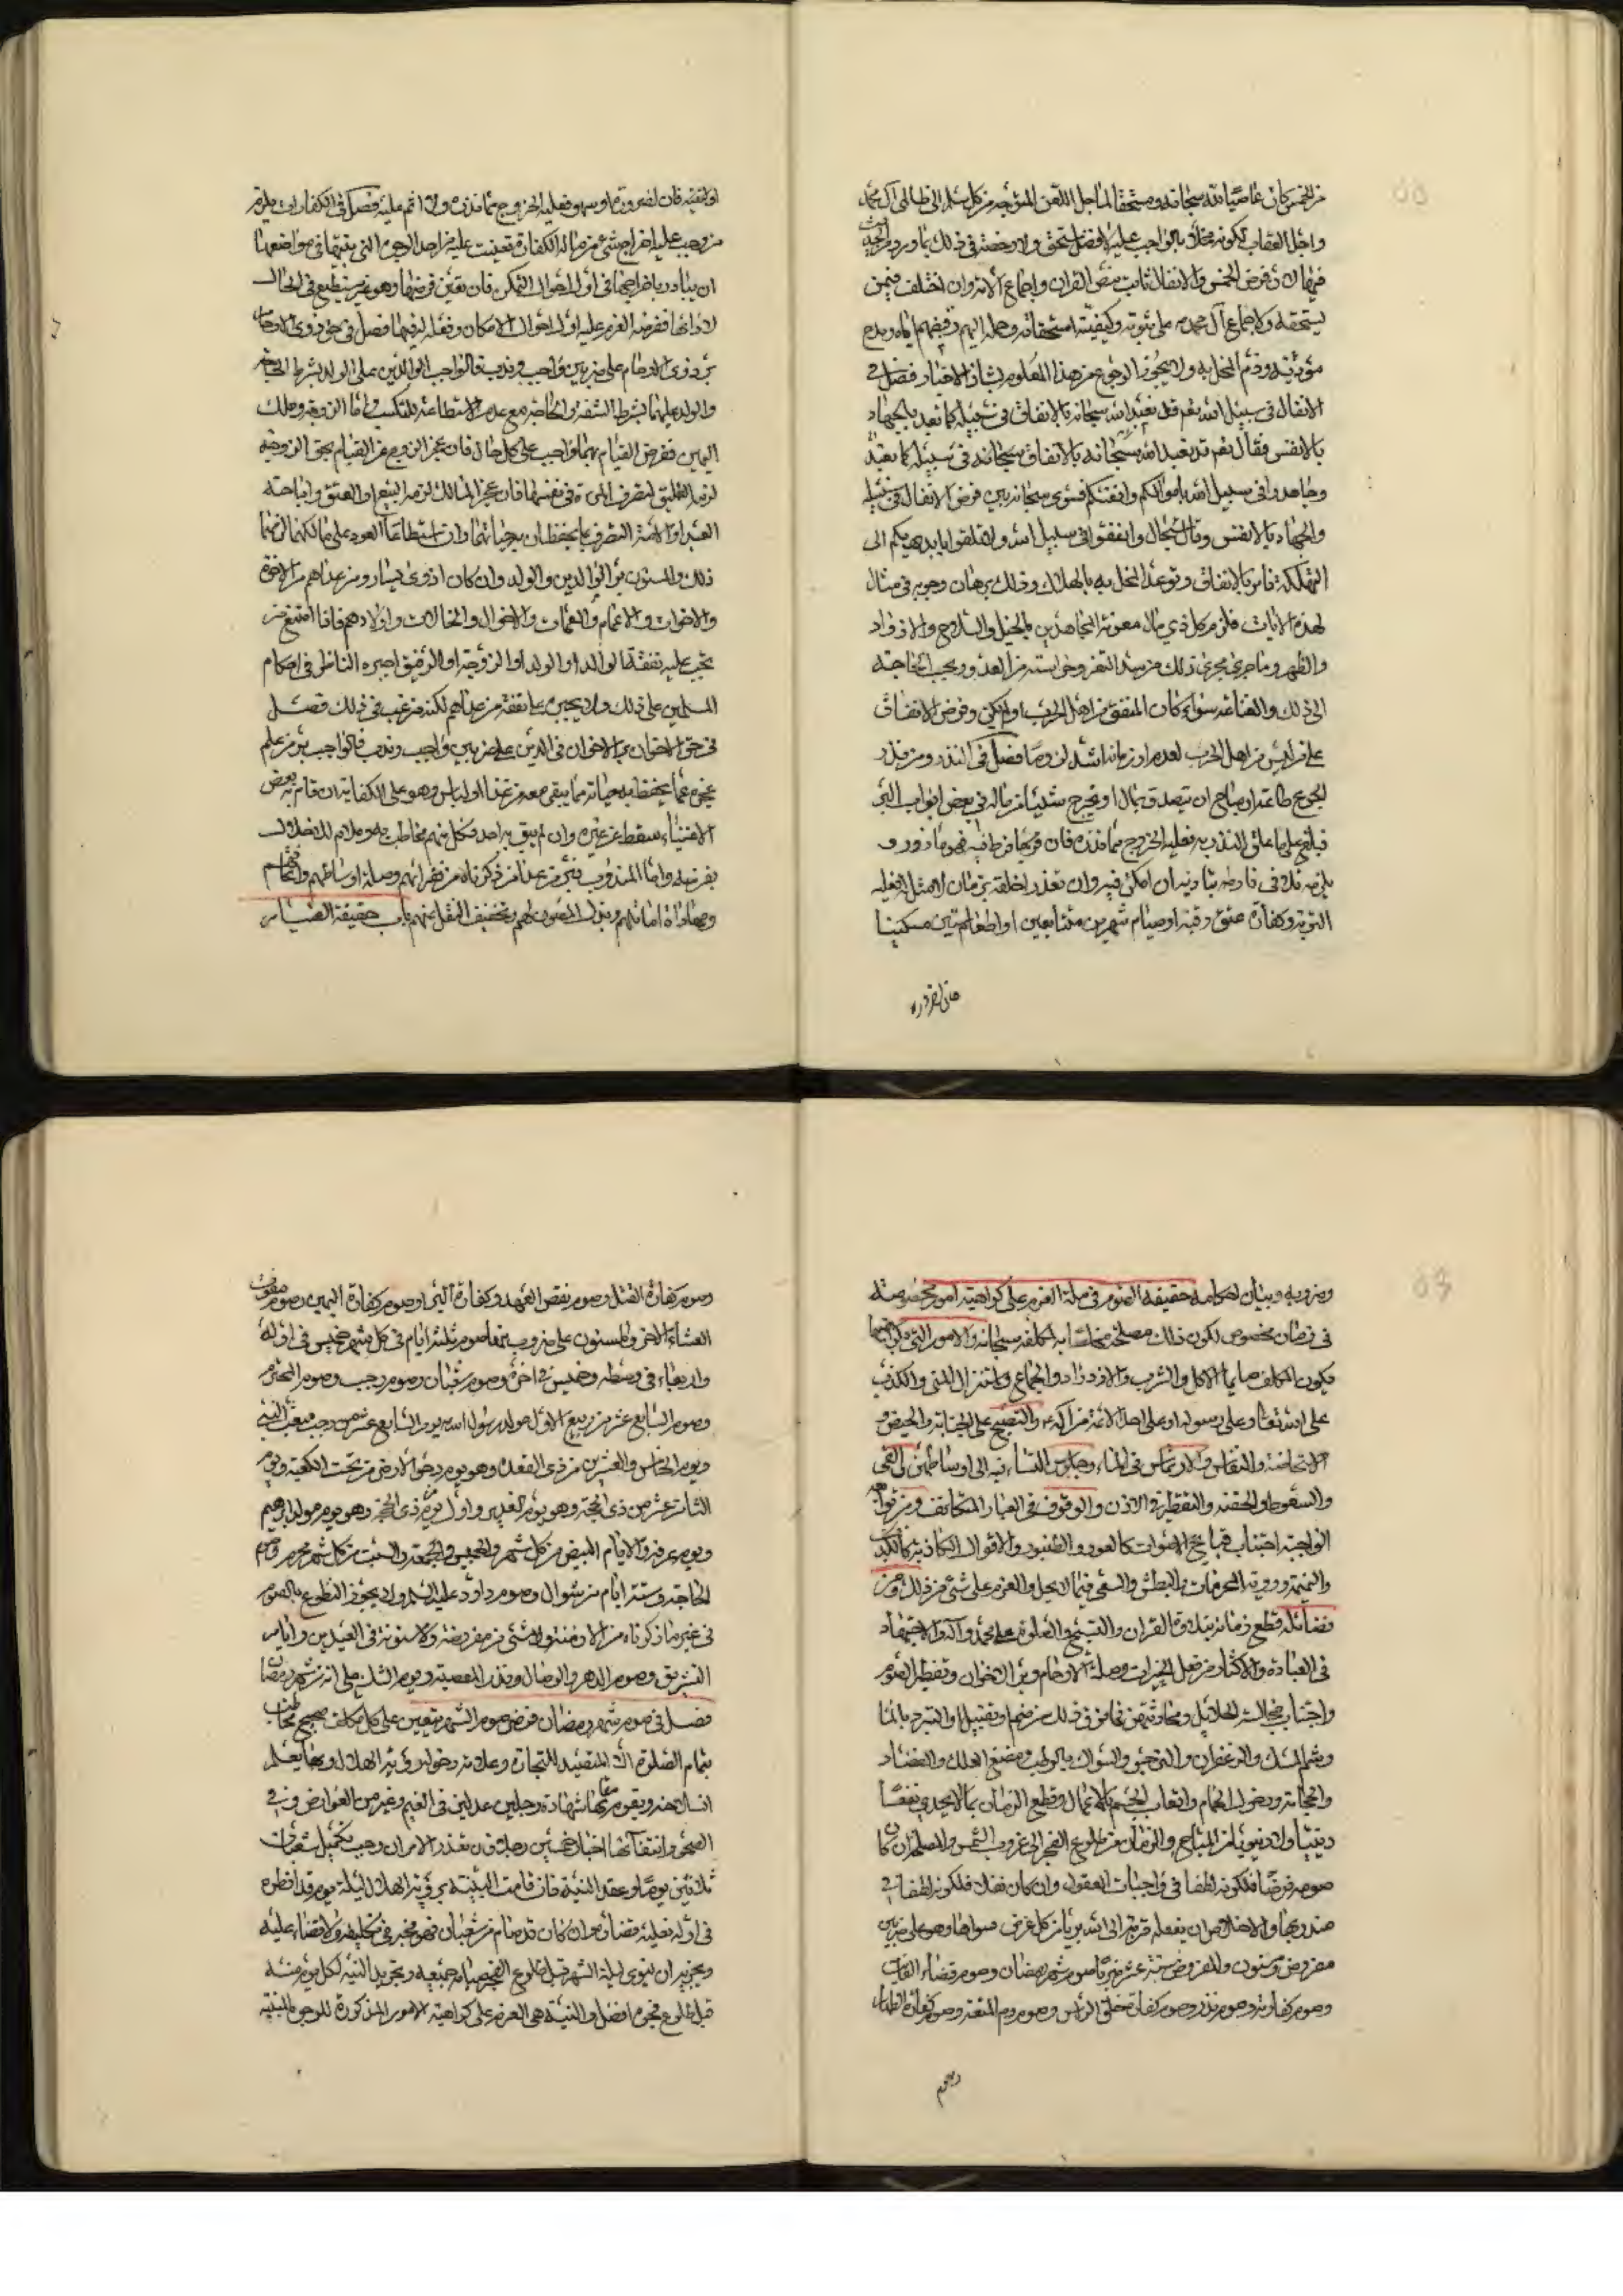 من الخمس كان عاصيا لله سبحانه ومستحقا لعاجل اللعن المتوجه من كل مسلم الى ظالمى آل محمد
واجل العقاب لكونه مخلا بالواجب عليه لافضل مستحق ولا رخصة فى ذلك بما ورد من الحديث
فيها لان فرض الخمس والانفال ثابت بنص القران واجماع الامة وان اختلف فيمن
يستحقه ولاجماع آل محمد على ثبوته وكيفيته استحقاقه وحمله اليهم وقبضهم اياه ومدح
مؤديه وذم المخل به ولا يجوز الرجوع عن هذا المعلوم بشاذ الاخبار فصل فى
الانفاق فى سبيل الله نعم قد تعبد الله سبحانه بالانفاق فى سبيله كما تعبد بالجهاد
بالانفس فقال نعم قد تعبد الله سبحانه بالانفاق سبحانه فى سبيله كما تعبد
وجاهدوا فى سبيل الله باموالكم وانفسكم فسوى سبحانه بين فرض الانفاق فى سبيله
والجهاد بالانفس وقال سبحانه وانفقوا فى سبيل الله ولا تلقوا بايديكم الى
التهلكة فامر بالانفاق وتوعد المخل به بالهلاك وذلك برهان وجوبه فى مثال
لهذه الايات فلزم كل ذى مال معونة المجاهدين بالخيل والسلاح والازواد
والظهر وما جرى مجرى ذلك من سد الثغر وحراسته من العدو وبحسب الحاجة
الى ذلك والغناء سواء كان المنفق من اهل الحرب او لم يكن وفرض الانفاق
على من ليس من اهل الحرب لعدم او زمانة اشد لزوما فصل فى النذر ومن نذر
لجوع طاعة او مباح ان يتصدق بمال او يخرج شيئا من ماله فى بعض ابواب البر
فبلغ ما علق النذر به فعليه الخروج مما نذره فان فرط فيه فهو مأزور و
يلزمه تلافى فارطه بتأديته ان امكن فيه وان تعذر لخلقة بزمان لا مثل له فعليه
التوبة وكفارة عتق رقبة او صيام شهرين متتابعين او اطعام ستين مسكينا
فان لضرورة
او لتقية فان لضرورة او سهو فعليه الخروج مما نذره ولا اثم عليه فصل فى الكفارات يلزم
من وجب عليه اخراج شىء من ماله لكفارة تعينت عليه من احد الوجوه التى بينها فى مواضعها
ان يبادر باخراجها فى اول احوال التمكن فان تعين فرضها وهو غير مستطيع فى الحال
لادائها ففرضه العزم عليه اول احوال الامكان وفعله فيها فصل فى حق ذوى الارحام
بر ذوى الارحام على ضربين واجب وندب فالواجب الوالدين على الولد بشرط الحاجة
والولد عليهما بشرط الشفة والحاجة مع عدم الاستطاعة للتكسب واما الزوجة وملك
اليمين ففرض القيام بهما واجب على كل حال فان عجز الزوج عن القيام بحق الزوجة
لزمه التطليق لتصرف المرءة فى نفسها فان عجز المالك لزمه البيع او العتق واباحته
العبد او الامة التصرف بما يحفظان به حياتهما وان استطاعا العود على مالكهما لزمهما
ذلك والمسنون بر الوالدين والولد وان كان اذوى يسار ومن عداهم من الاخوة
والاخوات والاعمام والعمات والاخوال والخالات واولادهم فاذا امتنع من
يجب عليه نفقة الوالد او الولد او الزوجة او الرقيق اجبره الناظر فى احكام
المسلمين على ذلك ولا يجبره على نفقة من عداهم لكنه مرغب فى ذلك فصل
فى حق الاخوان بر الاخوان فى الدين على ضربين واجب وندب فالواجب بر من علم
عجزه عما يحفظ به حياته مما يبقى معه من غذاء او لباس وهو على الكفاية ان قام به بعض
الاغنياء سقط عن غيره وان لم يبق به احد فكل منهم مخاطب به وملام للاخلال
بفرضه واما المندوب فبر من عدا من ذكرناه من فقرائهم وصلة اوساطهم واتحافهم
ومهاداة اماثلهم وبذل المعونة لهم وتخفيف الثقل عنهم باب حقيقة الصيام
وضروبه وبيان احكامه حقيقة الصوم فى ملة العزم على كراهية امور مخصوصة
فى زمان مخصوص لكون ذلك مصلحة مخلصا به لمكلفه سبحانه والامور التى يكرهها
فيكون المكلف صايما الاكل والشرب والازدراد والجماع واستنزال المنى والكذب
على الله تعا وعلى رسوله او على احد الائمة من آله والتصبيح على الجنابة والحيض و
الاستحاضة والنفاس والارتماس فى الماء وجلوس النساء فيه الى اوساطهن والقى
والسعوط والحقنة والتقطير فى الاذن والوقوف فى الغبار المتكاثف ومن توابعه
الواجبة اجتناب قبايح الاصوات كالعود والطنبور والاقوال الكاذبة كالكذب
والنميمة ورؤية المحرمات والبطش والسعى فيما لا يحل والعزم على شىء من ذلك ومن
فضائله قطع زمانه بتلاوة القران والتسبيح والصلوة على محمد وآله والاجتهاد
فى العبادة والاكثار من فعل الخيرات وصلة الارحام وبر الاخوان وتفطير الصوم
واجتناب مجالسة الحلائل ومحادثتهن فما فوق ذلك من ضم او تقبيل او التبرد بالماء
وشم المسك والزعفران والنرجس والسواك بالرطب ومضغ العلك والفصاد
والحجامة ودخول الحمام واتعاب الجسم بالاعمال وقطع الزمان بما لا يجدى نفعا
دينيا ولا دنيويا من المباح والزمان من طلوع الفجر الى غروب الشمس والمصلحة ان كان
صومه فرضا فلكونه لطفا فى واجبات العقول وان كان نفلا فلكونه لطفا فى
مندوبها والاخلاص ان يفعله قربة الى الله بريا من كل غرض سواها وهو على ضربين
مفروض ومسنون والمفروض ستة عشر ضربا صوم شهر رمضان وصوم قضاء الفائت
وصوم كفارته وصوم نذر وصوم كفارة حلق الراس وصوم دم المتعة وصوم كفارة الظهار
وصوم
وصوم كفارة القتل وصوم نقض العهد وكفارة البر او صوم كفارة اليمين وصوم مفوت
العشاء الاخرة والمسنون على ضروب منها صوم ثلثة ايام فى كل شهر خميس فى اوله
واربعاء فى وسطه وخميس فى اخره وصوم شعبان وصوم رجب وصوم المحرم
وصوم السابع عشر من ربيع الاول مولد رسول الله يوم السابع عشرين من رجب مبعث النبى
ويوم الخامس والعشرين من ذى القعدة وهو يوم دحو الارض من تحت الكعبة ويوم
الثامن عشر من ذى الحجة وهو يوم الغدير واول يوم من ذى الحجة وهو يوم مولد ابرهيم
ويوم عرفة والايام البيض من كل شهر والخميس والجمعة والسبت من كل شهر محرم وصوم
الحاجة وستة ايام من شوال وصوم داود عليه السلم ولا يجوز التطوع بالصوم
فى غير ما ذكرناه من الازمنة ولا شىء من مفروضة ولا مسنونة فى العيدين وايام
التشريق وصوم الدهر والوصال ونذر المعصية ويوم الشك على انه من شهر رمضان
فصل فى صوم شهر رمضان فرض صوم الشهر يتعين على كل مكلف صحيح مخاطب
بتمام الصلوة الا المتقيد للتجارة وعلامة دخوله رؤية الهلال وبها يعلم
انسلاخه ويقوم مقامها شهادة رجلين عدلين فى الغيم وغيره من العوارض وفى
الصحو وانتفائها اخبار خمسين رجلا فان تعذر الامران وجب تكميل شعبان
ثلاثين يوما وعقد النية فان قامت البينة برؤية الهلال ليلة يوم قد افطره
فى اوله فعليه قضائه وان كان قد صام من شعبان فهو مجز فى تكليفه ولا قضاء عليه
ويجزيه ان ينوى ليلة الشهر قبل طلوع الفجر صيامه جميعه وتجديد النية لكل يوم منه
قبل طلوع فجره افضل والنية هى العزم على كراهية الامور المذكورة للوجوه المبينة